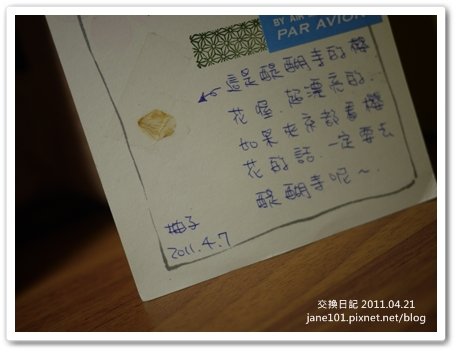 BY AIR
PAR AVION
這是醍醐寺的櫻
花喔.超漂亮的.
如果來京都看櫻
花的話.一定要去
醍醐寺呢~
柚子
2011.4.7
交換日記 2011.04.21
jane101.pixnet.net/blog